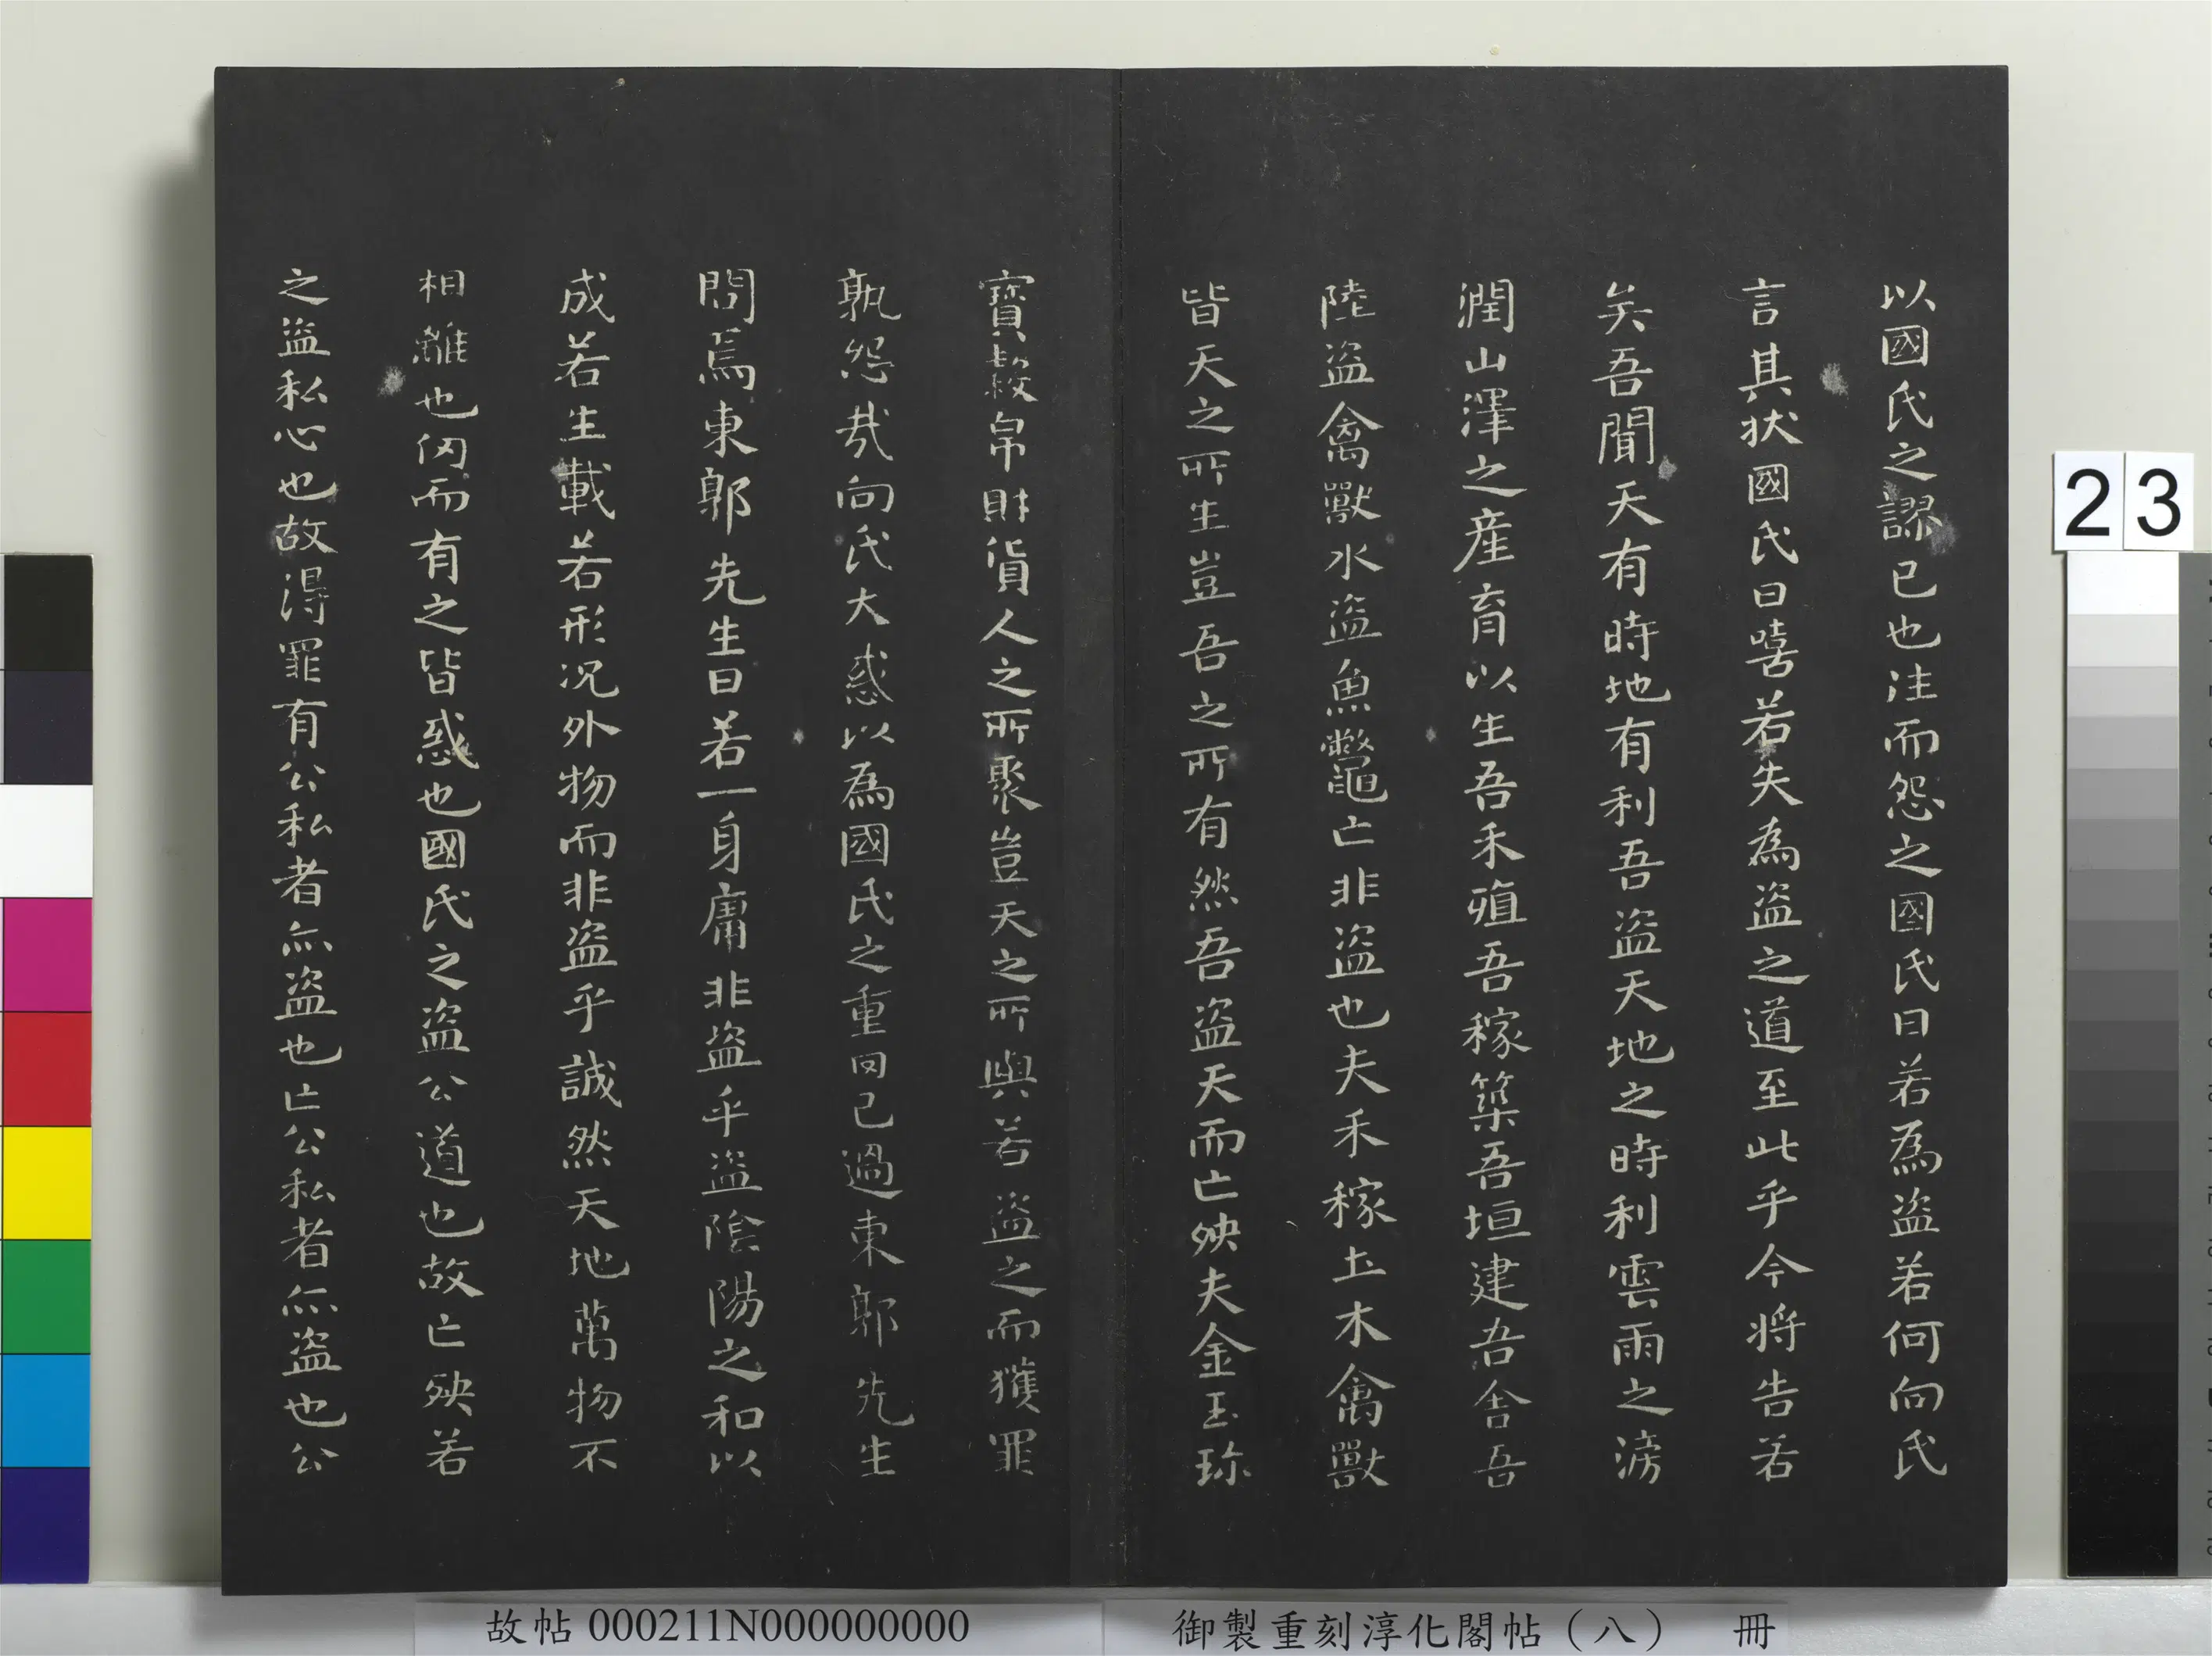 以國氏之謬已也往而怨之國氏曰若為盗若何向氏
言其状國氏曰嘻若失為盗之道至此乎今将告若
矣吾聞天有時地有利吾盗天地之時利雲雨之滂
潤山澤之產育以生吾禾殖吾稼築吾垣建吾舎吾
陸盗禽獸水盗魚鼈亡非盗也夫禾稼土木禽獸
皆天之所生豈吾之所有然吾盗天而亡殃夫金玉珎
寳穀帛財貨人之所聚豈天之所與若盗之而獲罪
孰怨哉向氏大惑以為國氏之重罔已過東郭先生
問焉東郭先生曰若一身庸非盗乎盗隂陽之和以
成若生載若形况外物而非盗乎誠然天地萬物不
相離也仞而有之皆惑也國氏之盗公道也故亡殃若
之盗私心也故得罪有公私者亦盗也亡公私者亦盗也公
23
故帖 000211N000000000
御製重刻淳化閣帖（八） 冊